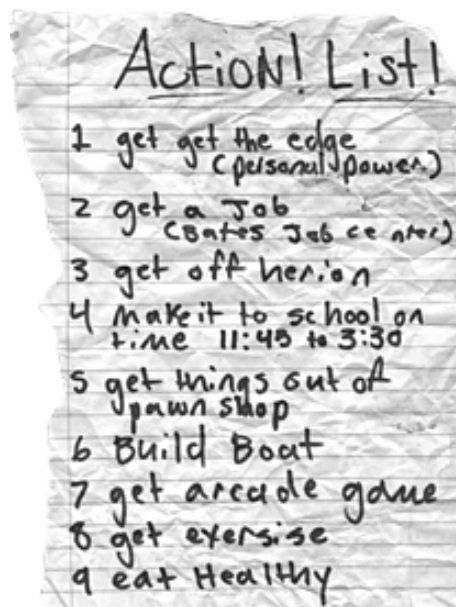 Action! List!
1 get get the edge
(personal power.)
2 get a Job
(Bates Job center)
3 get off herion
4 make it to school on
time 11:45 to 3:30
5 get things out of
pawn shop
6 Build Boat
7 get arcade game
8 get exersise
9 eat Healthy